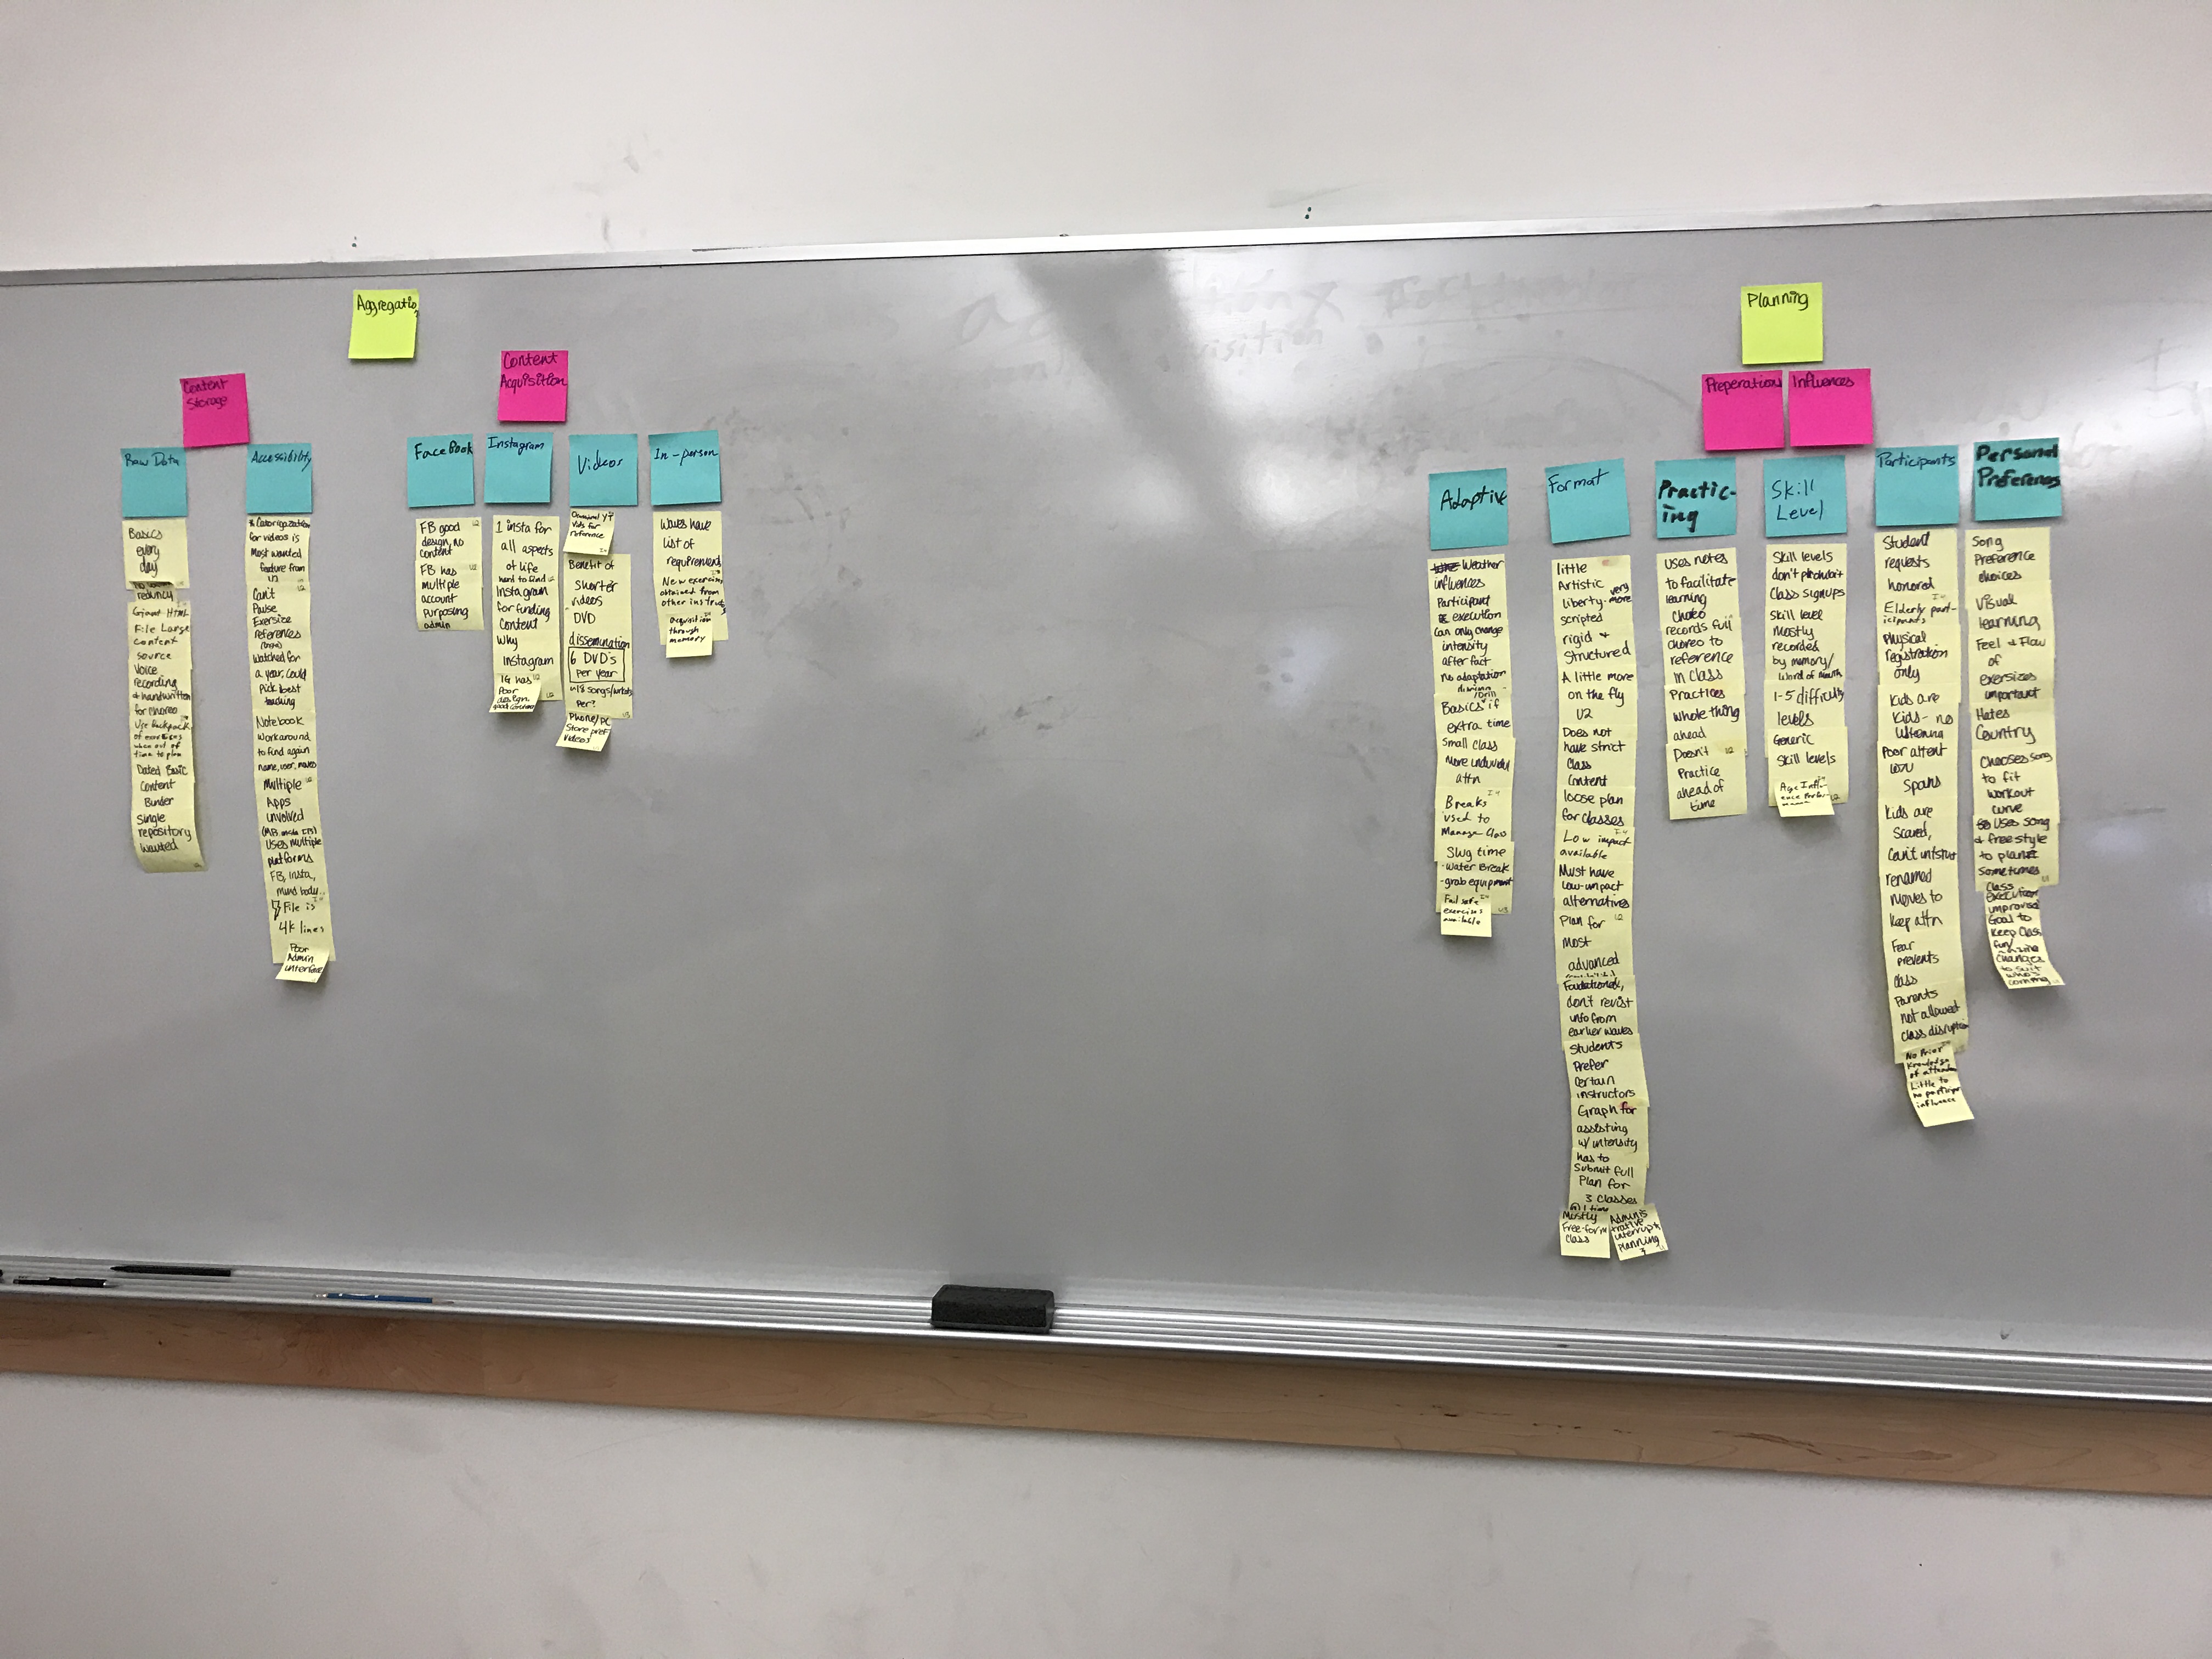 Aggregatio
Content
Storage
Content
Acquisition
Raw Data
Accessibility
FaceBook
Instagram
Videos
In-person
Basics
every
day
Giant HTML
File Large
Content
source
Voice
recording
& handwritten
for choreo
Use backpack
of exercises
when out of
time to plan
Dated Basic
Content
Binder
Single
repository
wanted
for videos is
Most wanted
feature from
U2
Can't
Pause
Exersize
references
watched for
a year, could
Pick best
teaching
Notebook
workaround
to find again
name, user, moves
Multiple
Apps
involved
Uses multiple
platforms
FB, insta,
mind body..
File is
4K lines
Poor
Admin
interface
FB good
design, no
content
FB has
multiple
account
purposing
admin
1 insta for
all aspects
of life
hard to find
Instagram
for funding
content
Why
Instagram
IG has
Poor
design,
good content
Occasional YT
Vids for
reference
Benefit of
shorter
videos
DVD
dissemination
6 DVD's
per year
per?
Phone/PC
Store pref
videos
Waves have
list of
requirements
New exercises
obtained from
other instructs
acquisition
through
memory
Planning
Preperation
Influences
Adaptive
Format
Practic-
ing
Skill
Level
Participants
Personal
Preferences
Weather
influences
Participant
execution
Can only change
intensity
after fact
no adaptation
Basics if
extra time
Small class
More individual
attn
Breaks
used to
Manage class
Slug time
-Water Break
-grab equipment
Fail safe
exercises
available
little
Artistic
liberty- very
more
scripted
rigid &
Structured
A little more
on the fly
U2
Does not
have strict
Class
Content
loose plan
for classes
Low impact
available
Must have
low-impact
alternatives
Plan for
most
advanced
Foundational,
don't revist
info from
earlier waves
Students
Prefer
Certain
instructors
Graph for
assisting
w/ intensity
has to
Submit full
Plan for
3 classes
@ 1 time
Mostly
Free-form
class
Adminis
trative
interrupts
planning
Uses notes
to facilitate
learning
Choreo
records full
choreo to
reference
in class
Practices
whole thing
ahead
Doesn't
Practice
ahead of
time
Skill levels
don't prohibit
Class signups
Skill level
mostly
recorded
by memory/
Word of Mouth
1-5 difficulty
levels
Generic
Skill levels
Student
requests
honored
Elderly part-
icipants
Physical
registration
only
Kids are
Kids- no
listening
Poor attent
Spans
Kids are
Scared,
renamed
Moves to
Keep attn
Fear
prevents
class
Parents
not allowed
class disruption
No Prior
Knowledge
of attendees
Little to
no particip.
influence
Song
Preference
choices
Visual
learning
Feel & Flow
of
exersizes
important
Hates
Country
Chooses song
to fit
workout
curve
Uses song
& freestyle
to plan
sometimes
Class
execution
improvised
Goal to
Keep Class
fun
Changes
to suit
who's
coming